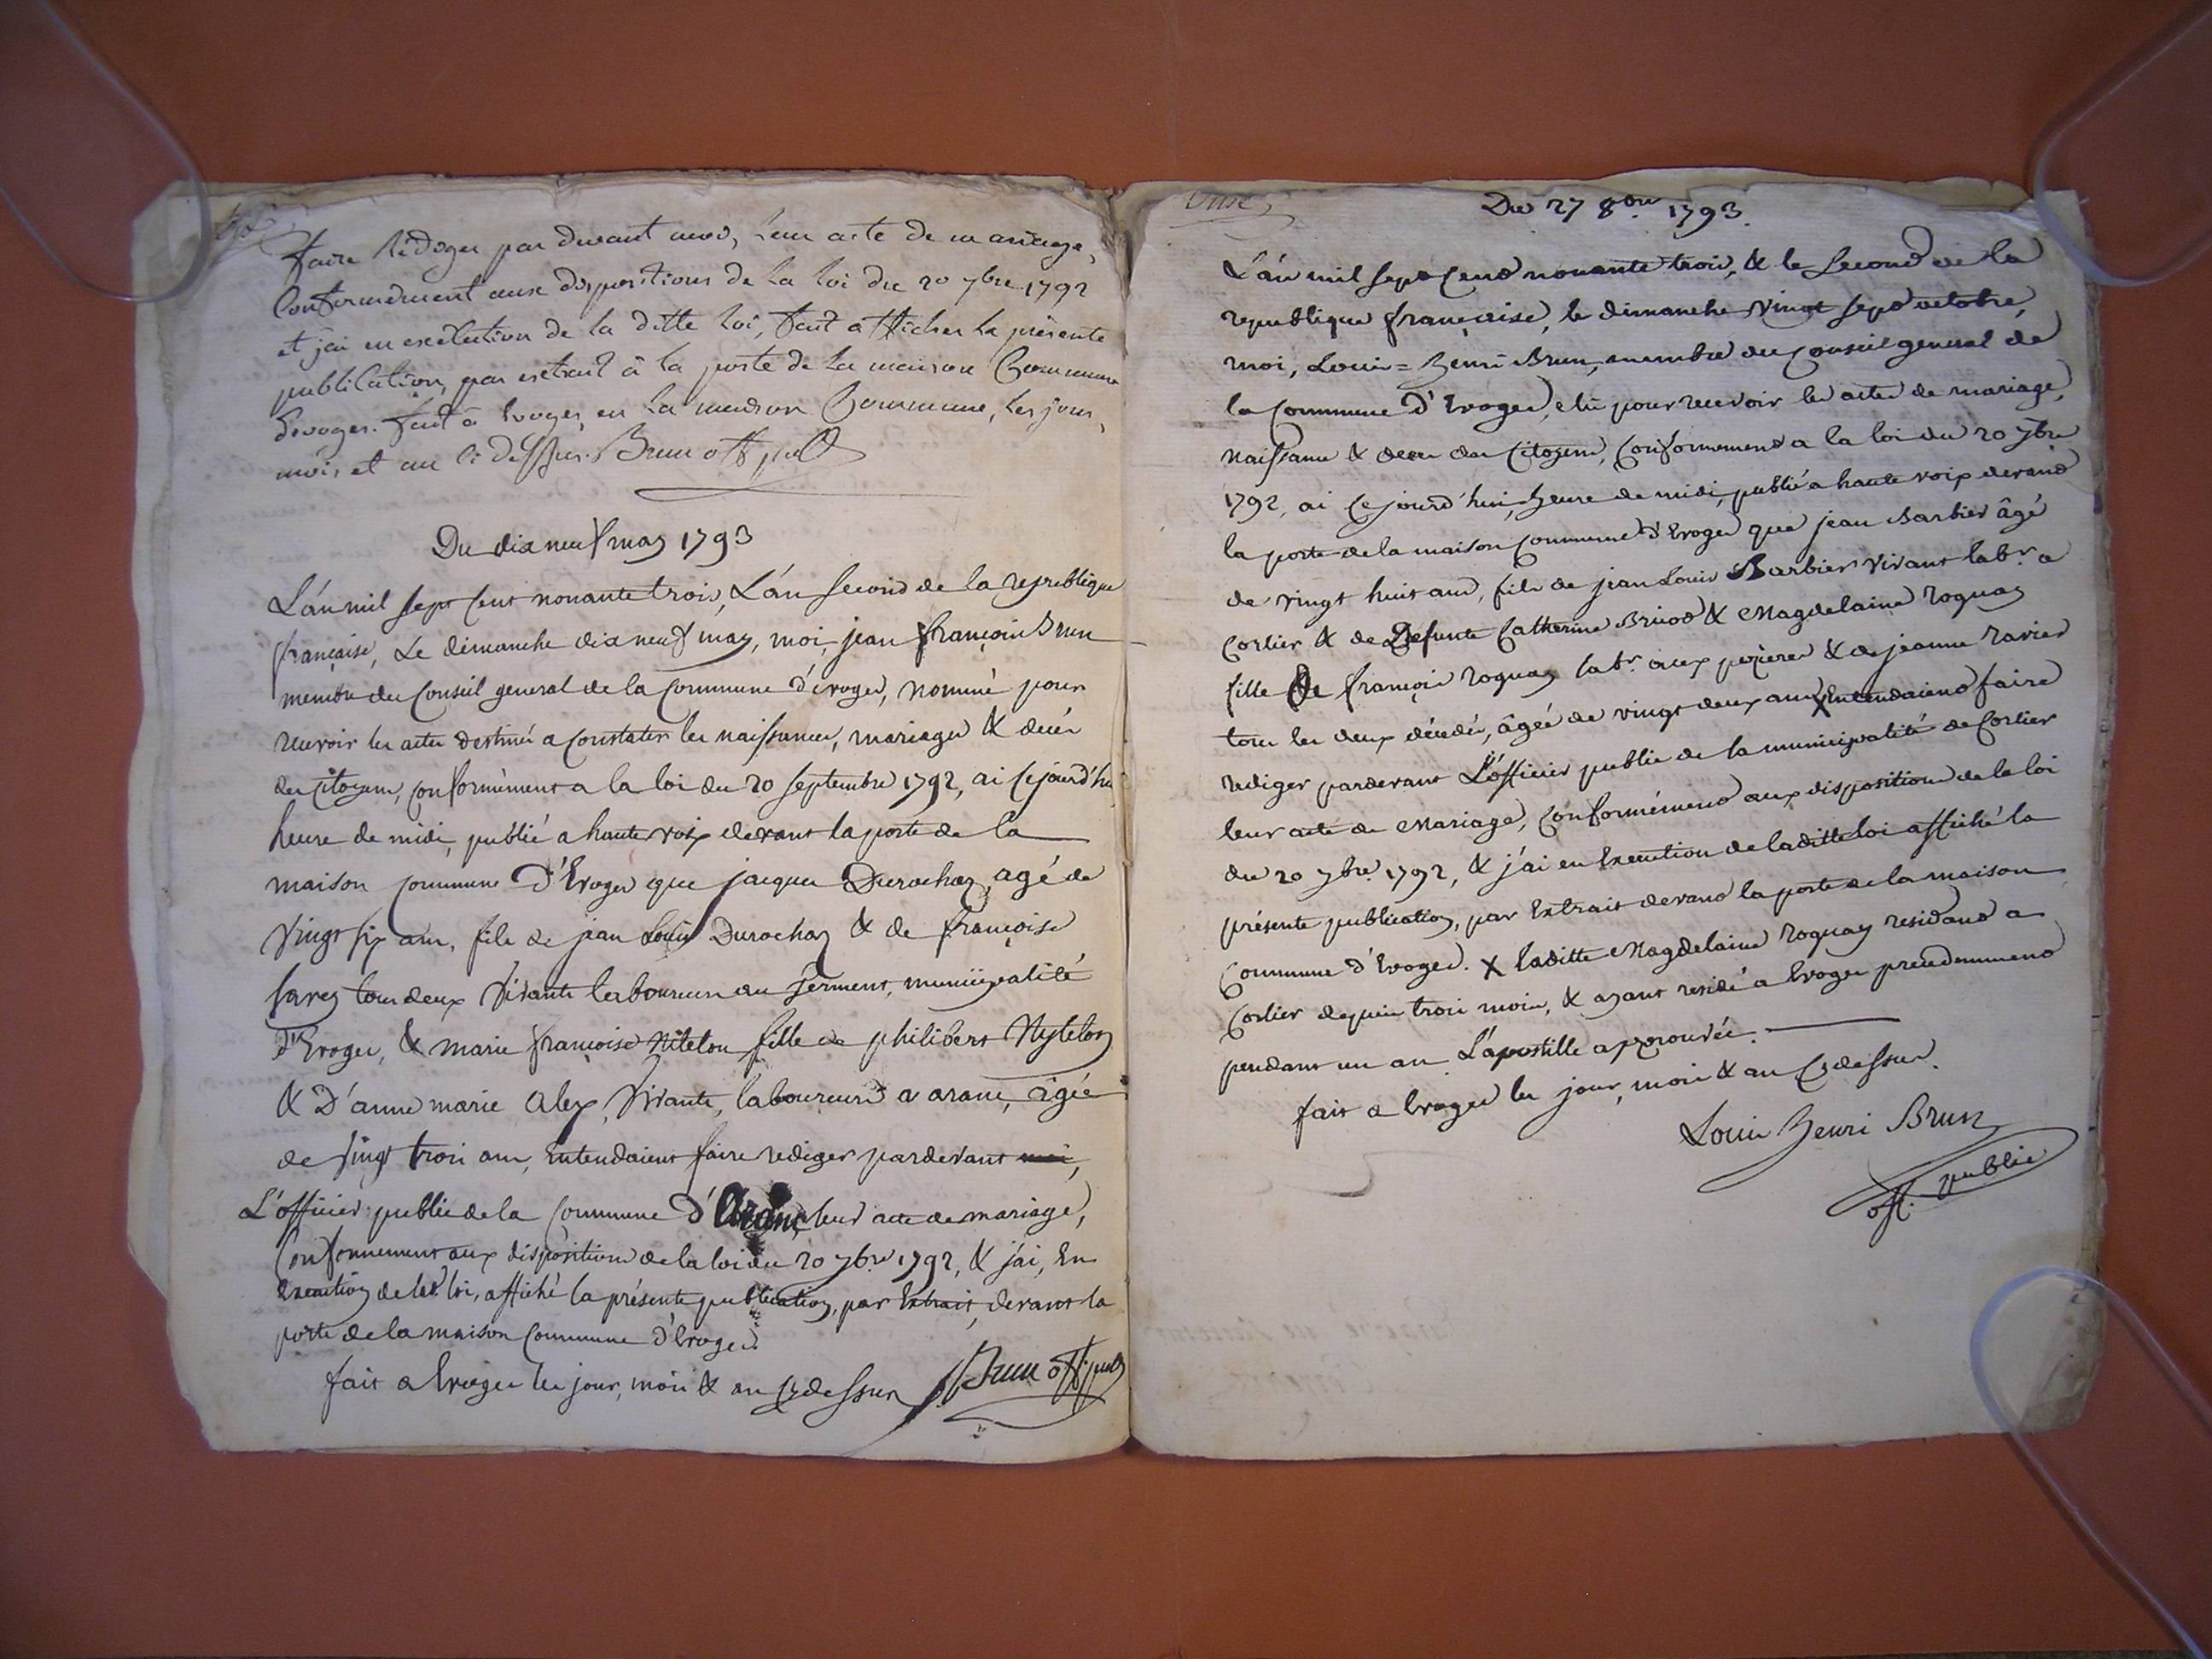 faire rédiger par devant moi, leur acte de mariage,
Conformément aux dispositions de la loi du 20 7bre 1792
et j'ai en exécution de la ditte loi, fait afficher la présente
publication, par extrait à la porte de la maison Commune
d'evoges. fait à Evoges, en la maison Commune, les jour,
mois et an ci dessus. Brun off. pub
Du dix neuf may 1793
L'án mil sept cent nonante trois, L'án second de la republique
française, Le dimanche dix neuf may, moi, jean françois Brun
membre du Conseil general de la Commune d'évoges, nommé pour
recevoir les actes destinés a constater les naissances, mariages & decès
des Citoyens, conformément a la loi du 20 septembre 1792, ai cejourd'hui
heure de midi, publié a haute voix devant la porte de la
maison commune D'Evoges que jacques Durochaz, agé de
Vingt six ans, fils de jean Louis Durochaz & de françoise
tous deux vivants laboureurs au serment, municipalité
d'Evoges, & marie françoise Niteton fille de philibert Nyteton
& D'anne marie Alex, Vivants, laboureurs a aranc, âgée
de vingt trois ans, Entendaient faire rediger pardevant moi,
L'officier public de la Commune d'Aranc leur acte de mariage,
Conformement aux dispositions de la loi du 20 7bre 1792, & j'ai, En
Execution de lad. loi, affiché la présente publication, par Extrait, devant la
porte de la maison Commune d'Evoges.
fait a Evoges les jour, mois & an cy dessus Brun off. pub
Onze
Du 27 8bre 1793.
L'án mil sept cend nonante trois, & le second de la
republique française, le dimanche vingt sept octobre,
moi, Louis = henri Brun, membre du Conseil general de
la Commune d'Evoges, elu pour recevoir les actes de mariage,
naissance & deces des Citoyens, Conformement a la loi du 20 7bre
1792, ai cejourd'hui, heure de midi, publié a haute voix devand
la porte de la maison commune d'Evoges que jean Barbier âgé
de vingt huit ans, fils de jean Louis Barbier vivant labr. a
Corlier & de Defunte Catherine Bruod & Magdelaine roquay
fille de françois roquay labr. aux & de jeanne ravier
tous les deux décédés, âgée de vingt deux ans X Entendaiend faire
rediger pardevant L'officier public de la municipalité de Corlier
leur acte de Mariage, Conformémend aux disposition de la loi
du 20 7bre 1792, & j'ai en Execution de la ditte loi affiché la
présente publication, par Extrait devand la porte de la maison
Commune d'Evoges. X laditte Magdelaine roquay residand a
Corlier depuis trois mois, & ayant residé a Evoges precedemmend
pendant un an L'apostille approuvée.
fait a Evoges les jour, mois & an cy dessus.
Louis henri Brun
off. public